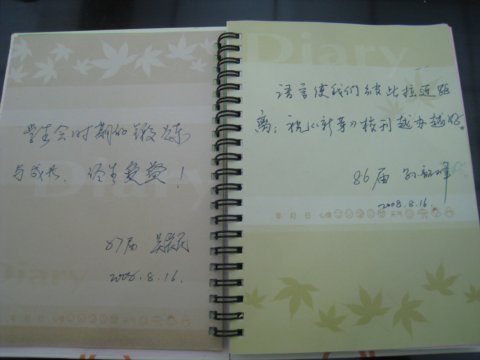 Diary
学生会时期的锻炼
与成长,终生受益!
87届
2008.8.16.
Diary
语言使我们彼此拉近距
离;祝《新芽》校刊越办越好。
86届
2008.8.16.